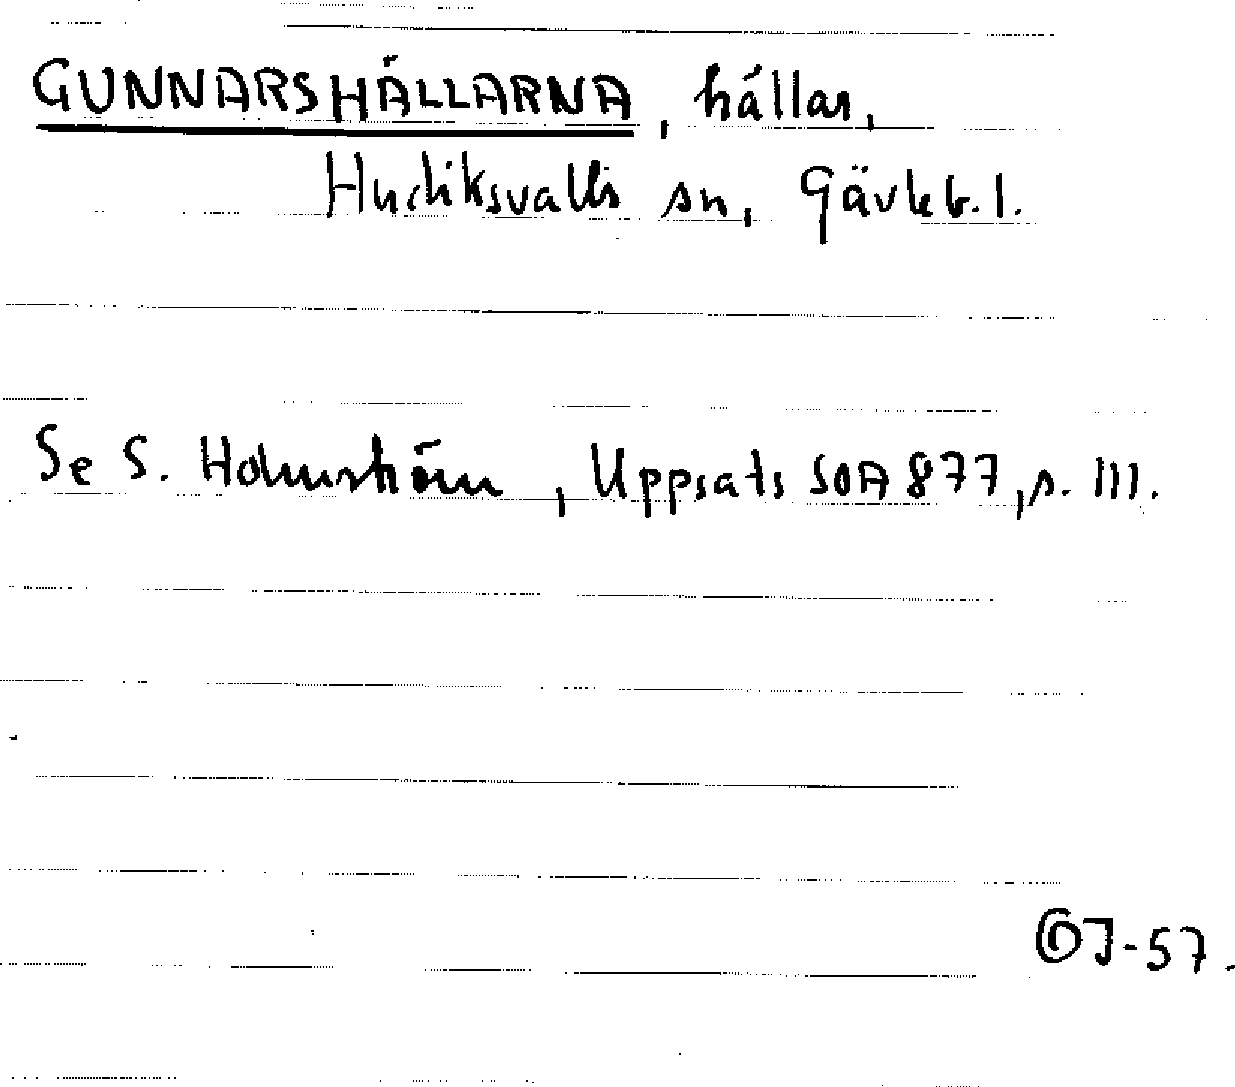 GUNNARSHÄLLARNA, hällar,
Hudiksvalls sn, Gävleb. l.
Se S. Holmström, Uppsats SOA 877, s. 111.